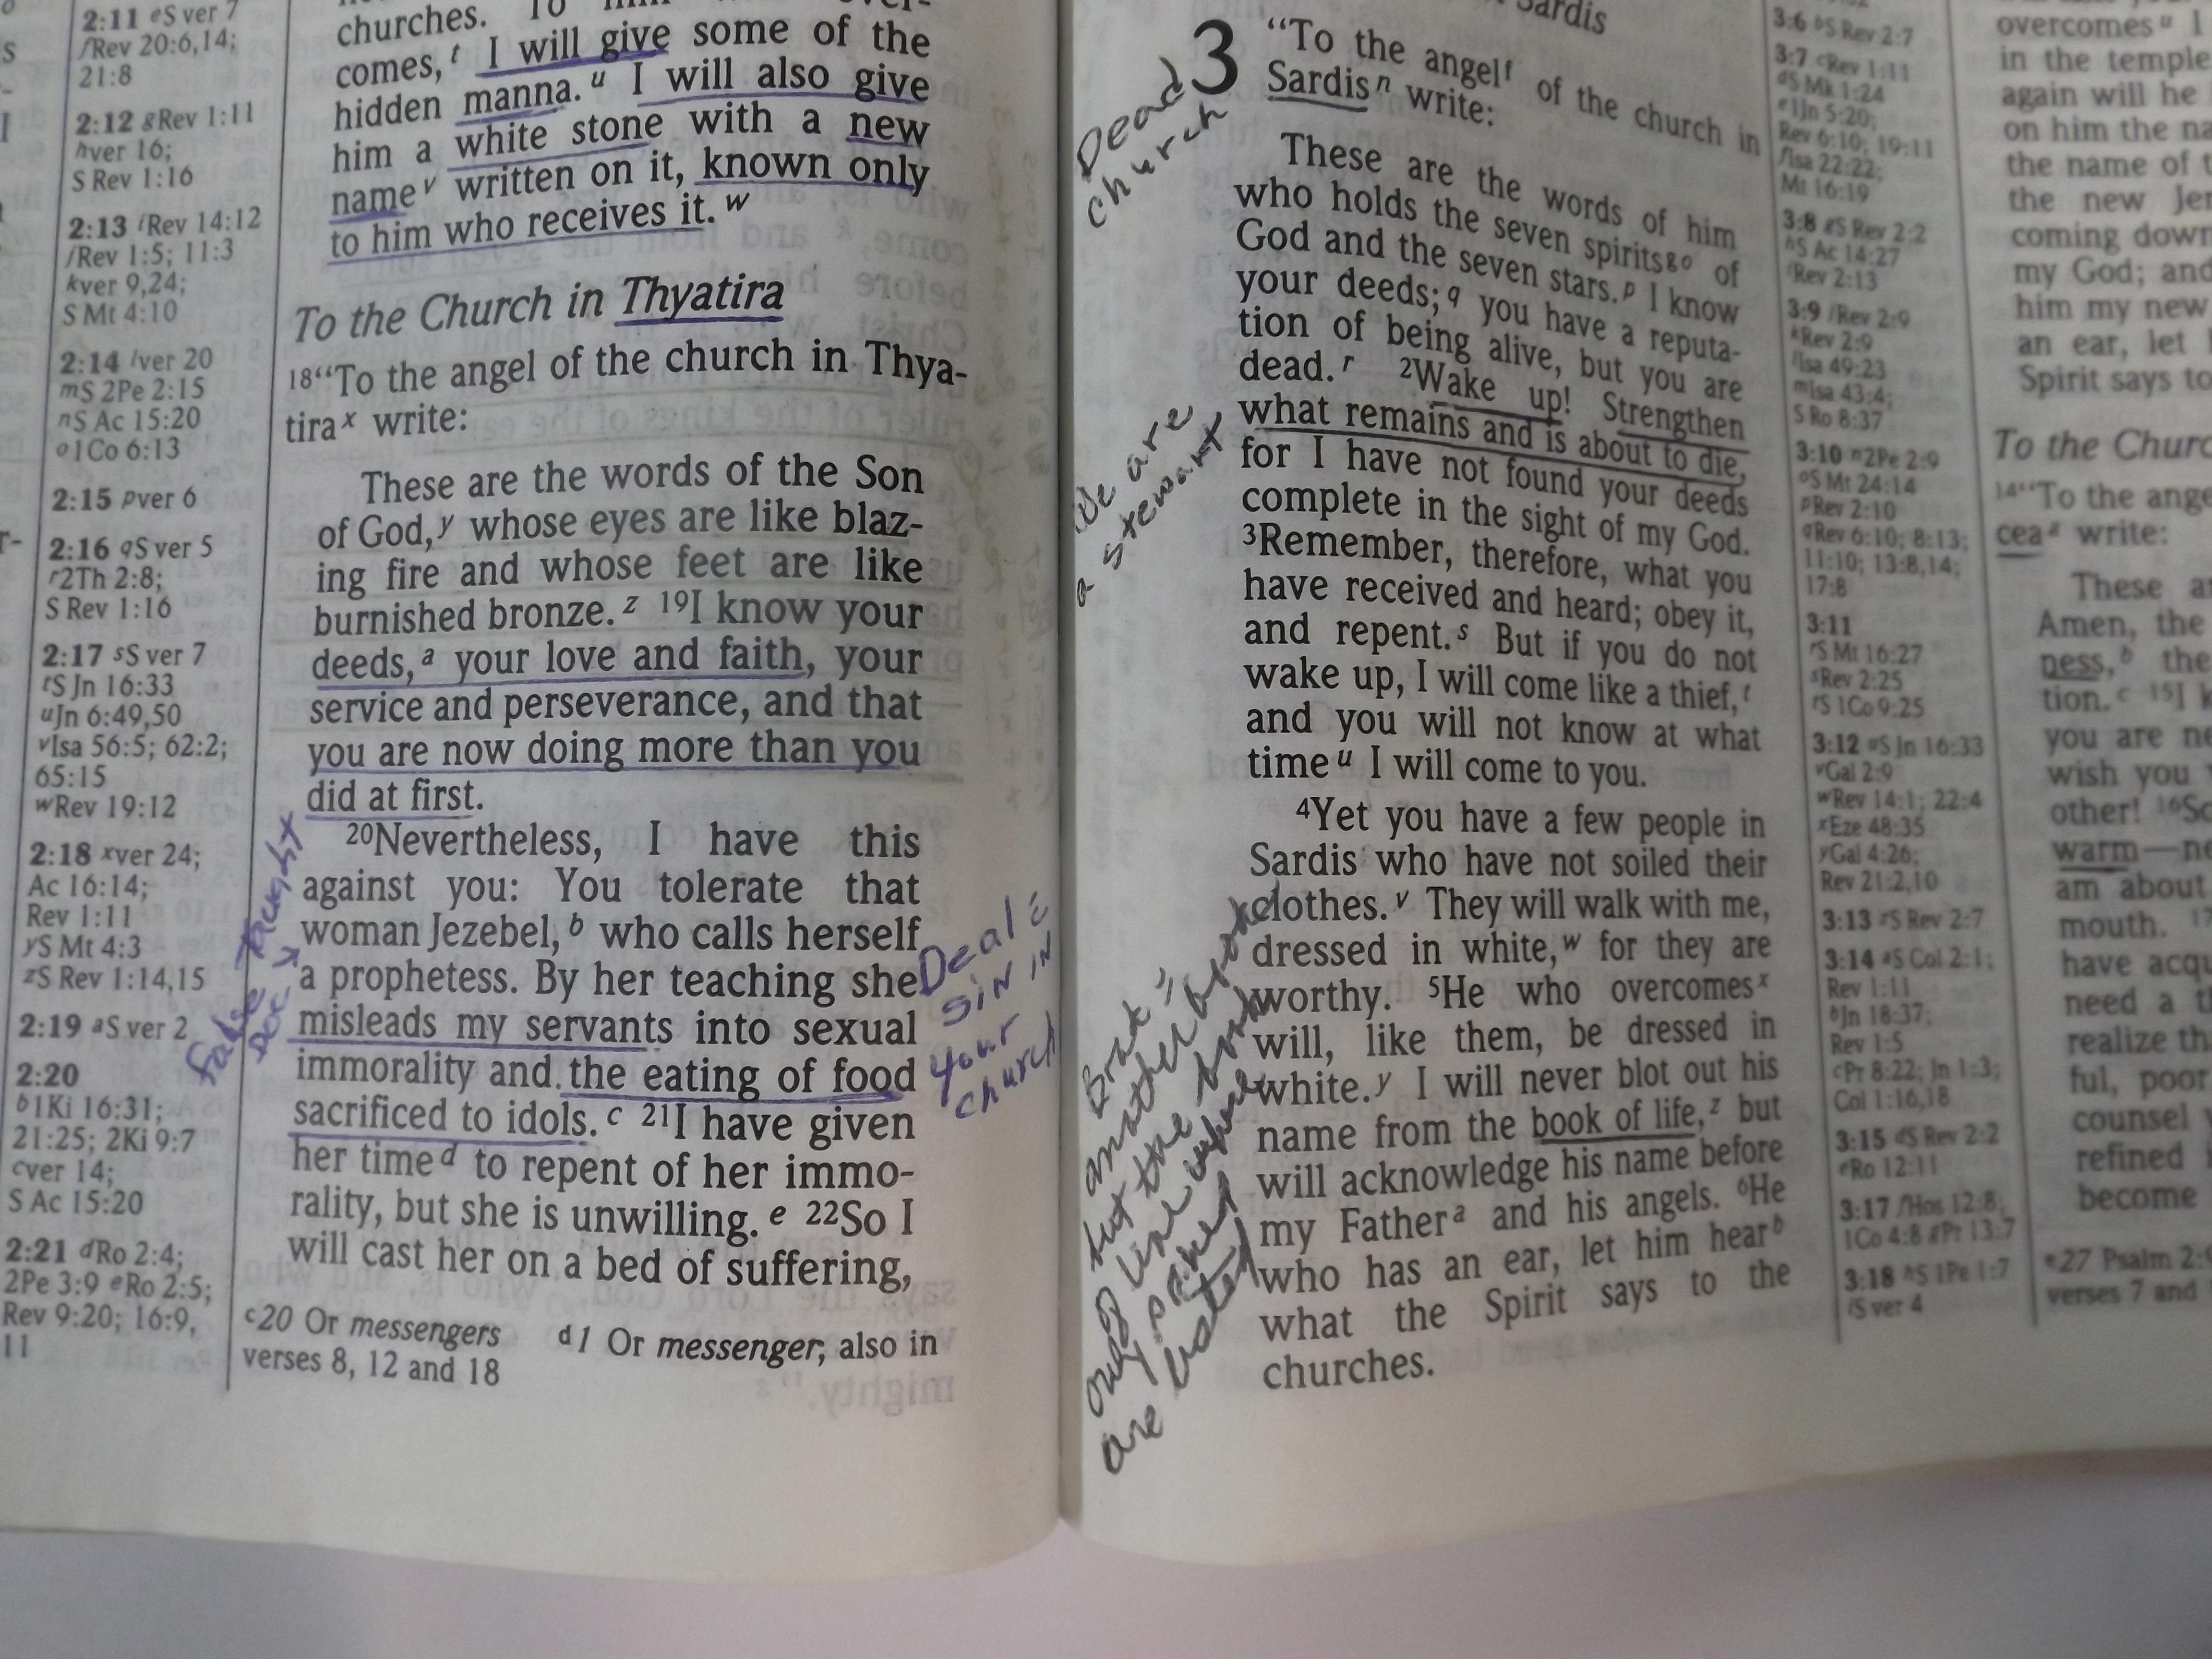 2:11 eS ver 7
fRev 20:6,14;
21:8
2:12 gRev 1:11
hver 16;
S Rev 1:16
2:13 iRev 14:12
jRev 1:5; 11:3
kver 9,24;
S Mt 4:10
2:14 lver 20
mS 2Pe 2:15
nS Ac 15:20
o1Co 6:13
2:15 pver 6
2:16 qS ver 5
r2Th 2:8;
S Rev 1:16
2:17 sS ver 7
tS Jn 16:33
uJn 6:49,50
vIsa 56:5; 62:2;
65:15
wRev 19:12
2:18 xver 24;
Ac 16:14;
Rev 1:11
yS Mt 4:3
zS Rev 1:14,15
2:19 aS ver 2
2:20
b1Ki 16:31;
21:25; 2Ki 9:7
cver 14;
S Ac 15:20
2:21 dRo 2:4;
2Pe 3:9 eRo 2:5;
Rev 9:20; 16:9,
11
churches. To him
comes,t I will give some of the
hidden manna.u I will also give
him a white stone with a new
namev written on it, known only
to him who receives it.w
To the Church in Thyatira
18“To the angel of the church in Thya-
tirax write:
These are the words of the Son
of God,y whose eyes are like blaz-
ing fire and whose feet are like
burnished bronze.z 19I know your
deeds,a your love and faith, your
service and perseverance, and that
you are now doing more than you
did at first.
20Nevertheless, I have this
against you: You tolerate that
woman Jezebel,b who calls herself
a prophetess. By her teaching she
misleads my servants into sexual
immorality and the eating of food
sacrificed to idols.c 21I have given
her timed to repent of her immo-
rality, but she is unwilling.e 22So I
will cast her on a bed of suffering,
false taught
Doc
Deal c
sin in
your
church
c20 Or messengers
verses 8, 12 and 18
d1 Or messenger; also in
Dead
church
we are
a stewart
another
but the book
of
only
are
Sardis
3 “To the angelf of the church in
Sardisn write:
These are the words of him
who holds the seven spiritsgo of
God and the seven stars.p I know
your deeds;q you have a reputa-
tion of being alive, but you are
dead.r 2Wake up! Strengthen
what remains and is about to die,
for I have not found your deeds
complete in the sight of my God.
3Remember, therefore, what you
have received and heard; obey it,
and repent.s But if you do not
wake up, I will come like a thief,t
and you will not know at what
timeu I will come to you.
4Yet you have a few people in
Sardis who have not soiled their
clothes.v They will walk with me,
dressed in white,w for they are
worthy. 5He who overcomesx
will, like them, be dressed in
white.y I will never blot out his
name from the book of life,z but
will acknowledge his name before
my Fathera and his angels. 6He
who has an ear, let him hearb
what the Spirit says to the
churches.
3:6 bS Rev 2:7
3:7 cRev 1:11
dS Mk 1:24
e1Jn 5:20;
Rev 6:10; 19:11
fIsa 22:22;
Mt 16:19
3:8 gS Rev 2:2
hS Ac 14:27
iRev 2:13
3:9 jRev 2:9
kRev 2:9
lIsa 49:23
mIsa 43:4;
S Ro 8:37
3:10 n2Pe 2:9
oS Mt 24:14
pRev 2:10
qRev 6:10; 8:13;
11:10; 13:8,14;
17:8
3:11
rS Mt 16:27
sRev 2:25
tS 1Co 9:25
3:12 uS Jn 16:33
vGal 2:9
wRev 14:1; 22:4
xEze 48:35
yGal 4:26;
Rev 21:2,10
3:13 zS Rev 2:7
3:14 aS Col 2:1;
Rev 1:11
bJn 18:37;
Rev 1:5
cPr 8:22; Jn 1:3;
Col 1:16,18
3:15 dS Rev 2:2
eRo 12:11
3:17 fHos 12:8;
1Co 4:8 gPr 13:7
3:18 hS 1Pe 1:7
iS ver 4
overcomesu I
in the temple
again will he
on him the
the name of
the new
coming down
my God; and
him my new
an ear, let
Spirit says to
To the
14“To the
ceaa write:
These
Amen, the
ness,b the
tion.c 15I
you are
wish you
other! 16
warm—
am about
mouth.
have
need a
realize
ful, poor
counsel
refined
become
e27 Psalm
verses 7 and